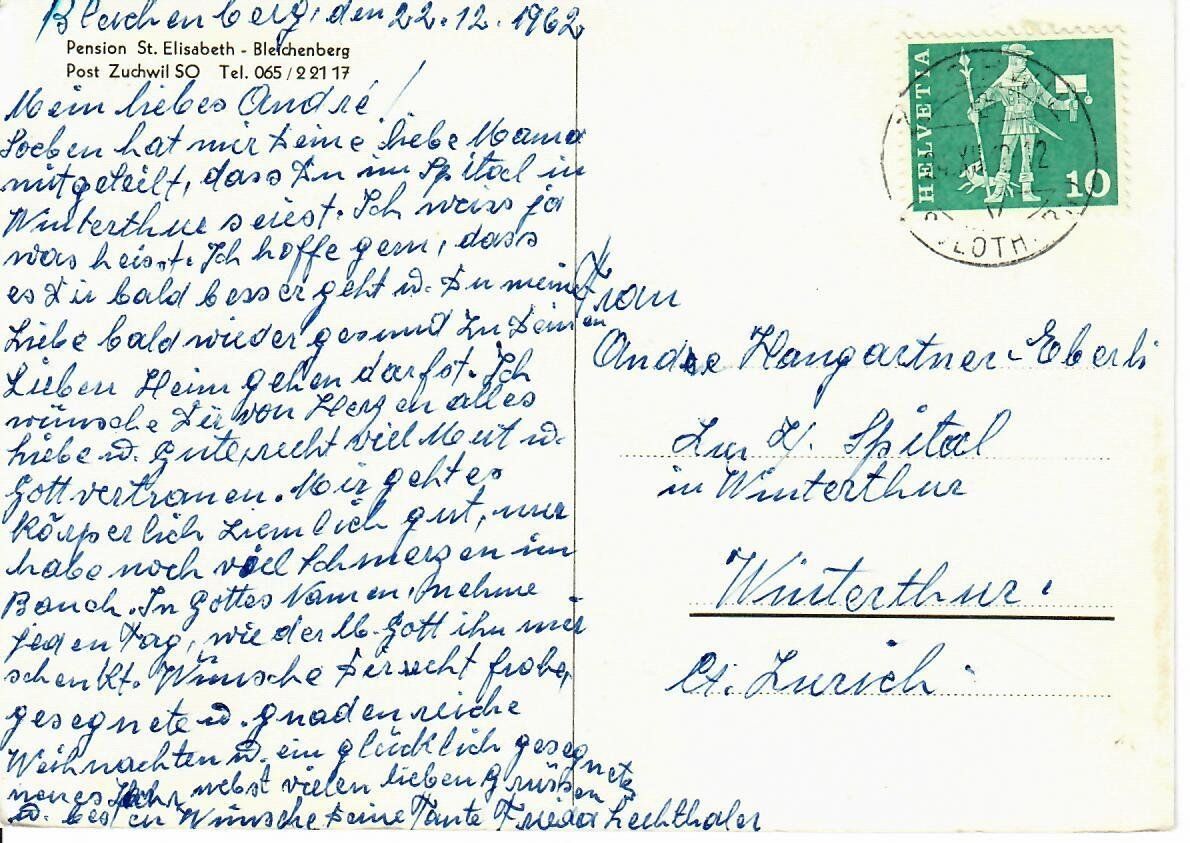 Bleichenberg, den 22.12.1962
Pension St. Elisabeth - Bleichenberg
Post Zuchwil SO Tel. 065 / 2 21 17
Mein liebes André!
Soeben hat mir Deine liebe Mama
mitgeteilt, dass Du im Spital in
Winterthur seiest. Ich weiss ja
was heisst. Ich hoffe gern, dass
es Dir bald besser geht u. Du meine
Liebe bald wieder gesund zu Deinen
Lieben Heim gehen darfst. Ich
wünsche Dir von Herzen alles
Liebe u. Gute, recht viel Mut u.
Gottvertrauen. Mir geht es
körperlich ziemlich gut, nur
habe noch viel Schmerzen im
Bauch. In Gottes Namen, nehme
jeden Tag, wie der lb. Gott ihn mir
schenkt. Wünsche Dir recht frohe,
gesegnete u. gnadenreiche
Weihnachten u. ein glücklich gesegnetes
neues Jahr nebst vielen lieben Grüssen
u. besten Wünsche Deine Tante Frieda Lechthaler
HELVETIA
10
Frau
Andre Hangartner-Eberli
Zur Z. Spital
in Winterthur
Winterthur.
Ct. Zürich